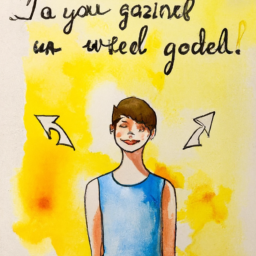 Ja you gazinel
ur weel godell!